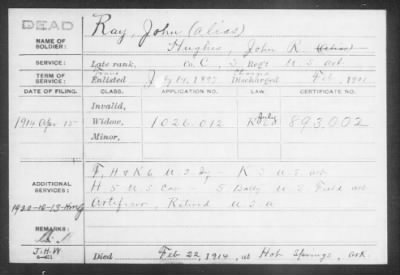 DEAD
NAME OF SOLDIER:
Ray, John (alias)
Hughes, John R.
SERVICE:
Late rank, Co. C, 3 Reg't U S Art
TERM OF SERVICE:
Enlisted July 1897 Discharged Feb. 1901
DATE OF FILING.
CLASS.
APPLICATION NO.
LAW.
CERTIFICATE NO.
Invalid,
1914 Apr 15
Widow,
1026,012
893,002
Minor,
ADDITIONAL SERVICES:
F, H & K 6 U S Inf - K 3 U S Art
H 5 U S Cav - 5 Batty U S Field Art
Artificer, Retired U S A
1920-12-13
REMARKS:
J-H-W
6-431
Died Feb 22, 1914, at Hot Springs, Ark.